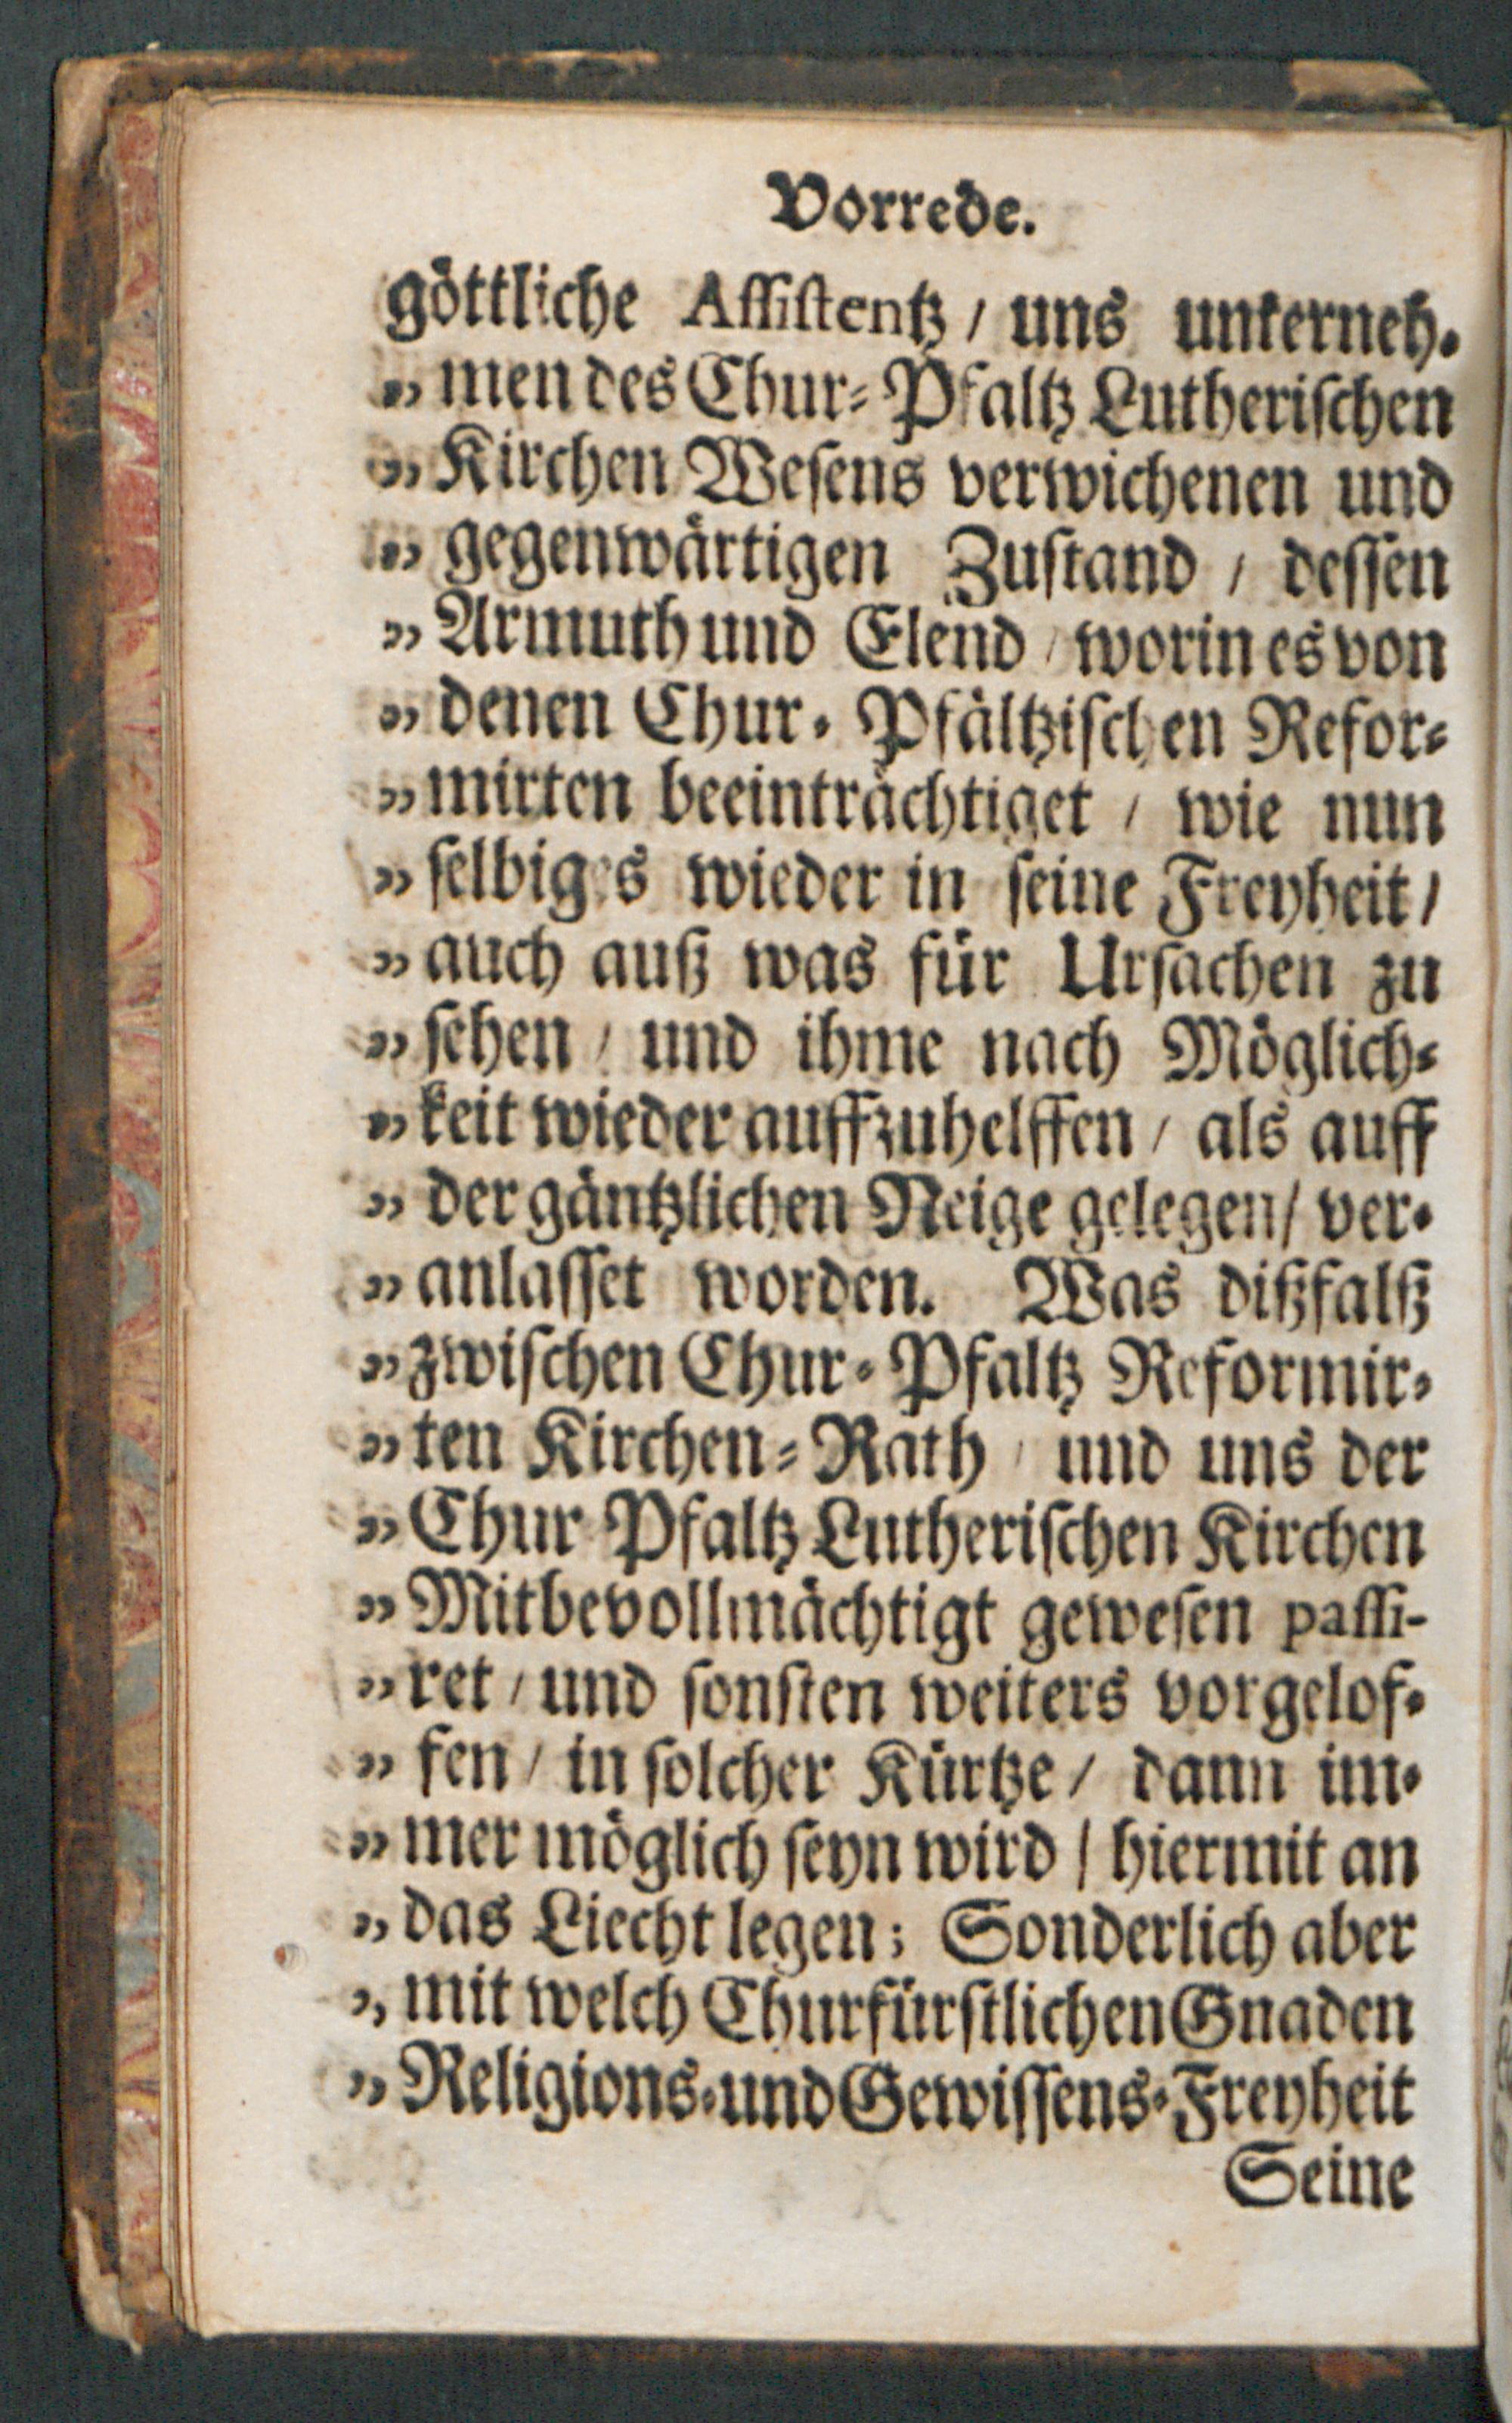 Vorrede.
göttliche Aſſiſtentz / uns unterneh-
„ men des Chur-Pfaltz Lutheriſchen
„ Kirchen Weſens verwichenen und
„ gegenwärtigen Zuſtand / deſſen
„ Armuth und Elend / worin es von
„ denen Chur-Pfältziſchen Refor-
„ mirten beeinträchtiget / wie nun
„ ſelbiges wieder in ſeine Freyheit /
„ auch auß was für Urſachen zu
„ ſehen / und ihme nach Möglich-
„ keit wieder auffzuhelffen / als auff
„ der gäntzlichen Neige gelegen / ver-
„ anlaſſet worden. Was dißfalß
„ zwiſchen Chur-Pfaltz Reformir-
„ ten Kirchen-Rath / und uns der
„ Chur Pfaltz Lutheriſchen Kirchen
„ Mitbevollmächtigt geweſen paſſi-
„ ret / und ſonſten weiters vorgelof-
„ fen / in ſolcher Kürtze / dann im-
„ mer möglich ſeyn wird / hiermit an
„ das Liecht legen; Sonderlich aber
„ mit welch Churfürſtlichen Gnaden
„ Religions- und Gewiſſens-Freyheit
Seine